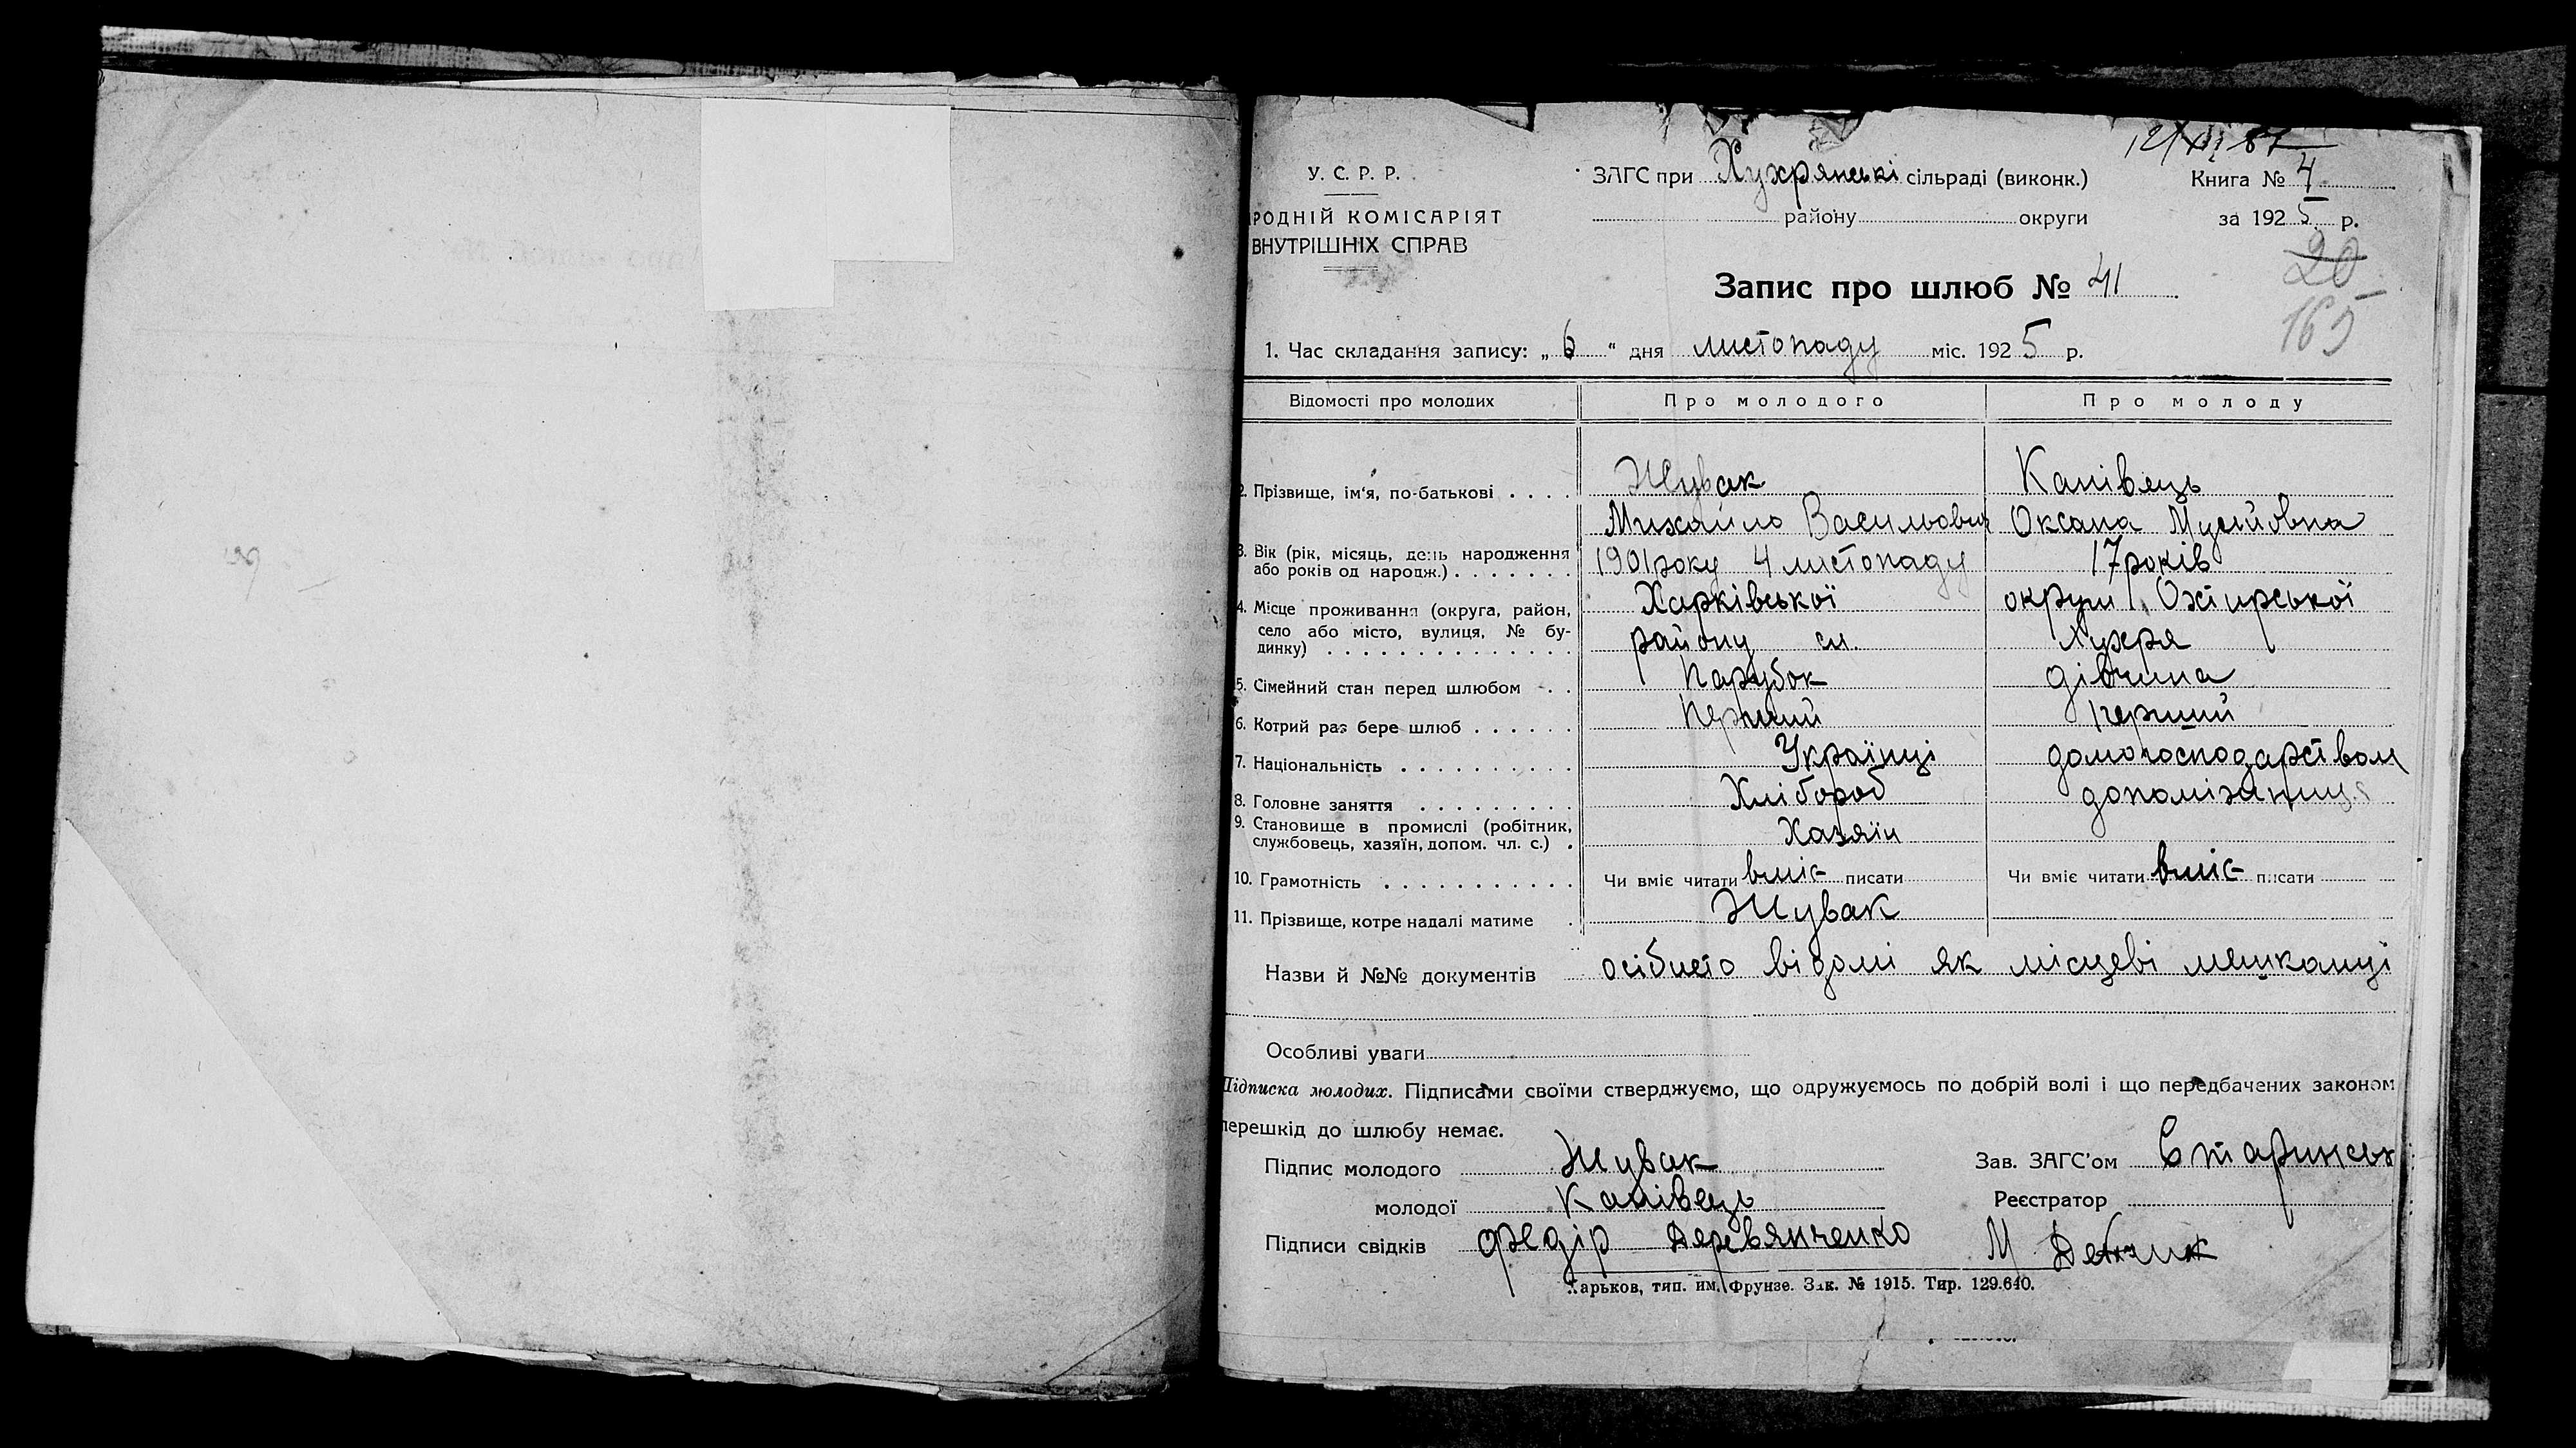 12/XII 87
У. С. Р. Р.
ЗАГС при Хухрянські сільраді (виконк.)
Книга № 4
РОДНІЙ КОМІСАРІЯТ
району округи
за 1925 р.
ВНУТРІШНІХ СПРАВ
20
Запис про шлюб № 41
165
1. Час складання запису: „ 6 “ дня листопаду міс. 1925 р.
Відомості про молодих
Про молодого
Про молоду
2. Прізвище, ім‘я, по-батькові . . . .
Жувак
Канівець
Михайло Васильович
Оксана Мусійовна
3. Вік (рік, місяць, день народження
або років од народж.) . . . . . . .
1901 року 4 листопаду
17 років
4. Місце проживання (округа, район,
село або місто, вулиця, № бу-
динку) . . . . . . . . . . . . . .
Харківської округи, Охтирської
району сл. Хухря
5. Сімейний стан перед шлюбом . .
Парубок
дівчина
6. Котрий раз бере шлюб . . . . . .
перший
перший
7. Національність . . . . . . . . . .
Українці
домогосподарством
8. Головне заняття . . . . . . . . .
Хлібороб
9. Становище в промислі (робітник,
службовець, хазяїн, допом. чл. с.) .
Хазяїн
10. Грамотність . . . . . . . . . . .
Чи вміє читати вміє писати
Чи вміє читати вміє писати
11. Прізвище, котре надалі матиме .
Жувак
Назви й №№ документів осібисто відомі як місцеві мешканці
Особливі уваги
Підписка молодих. Підписами своїми стверджуємо, що одружуємось по добрій волі і що передбачених законом
перешкід до шлюбу немає.
Підпис молодого Жувак
Зав. ЗАГС'ом
молодої Канівець
Реєстратор
Підписи свідків Федір Деревянченко М
Харьков, тип. им. Фрунзе. Зак. № 1915. Тир. 129.640.